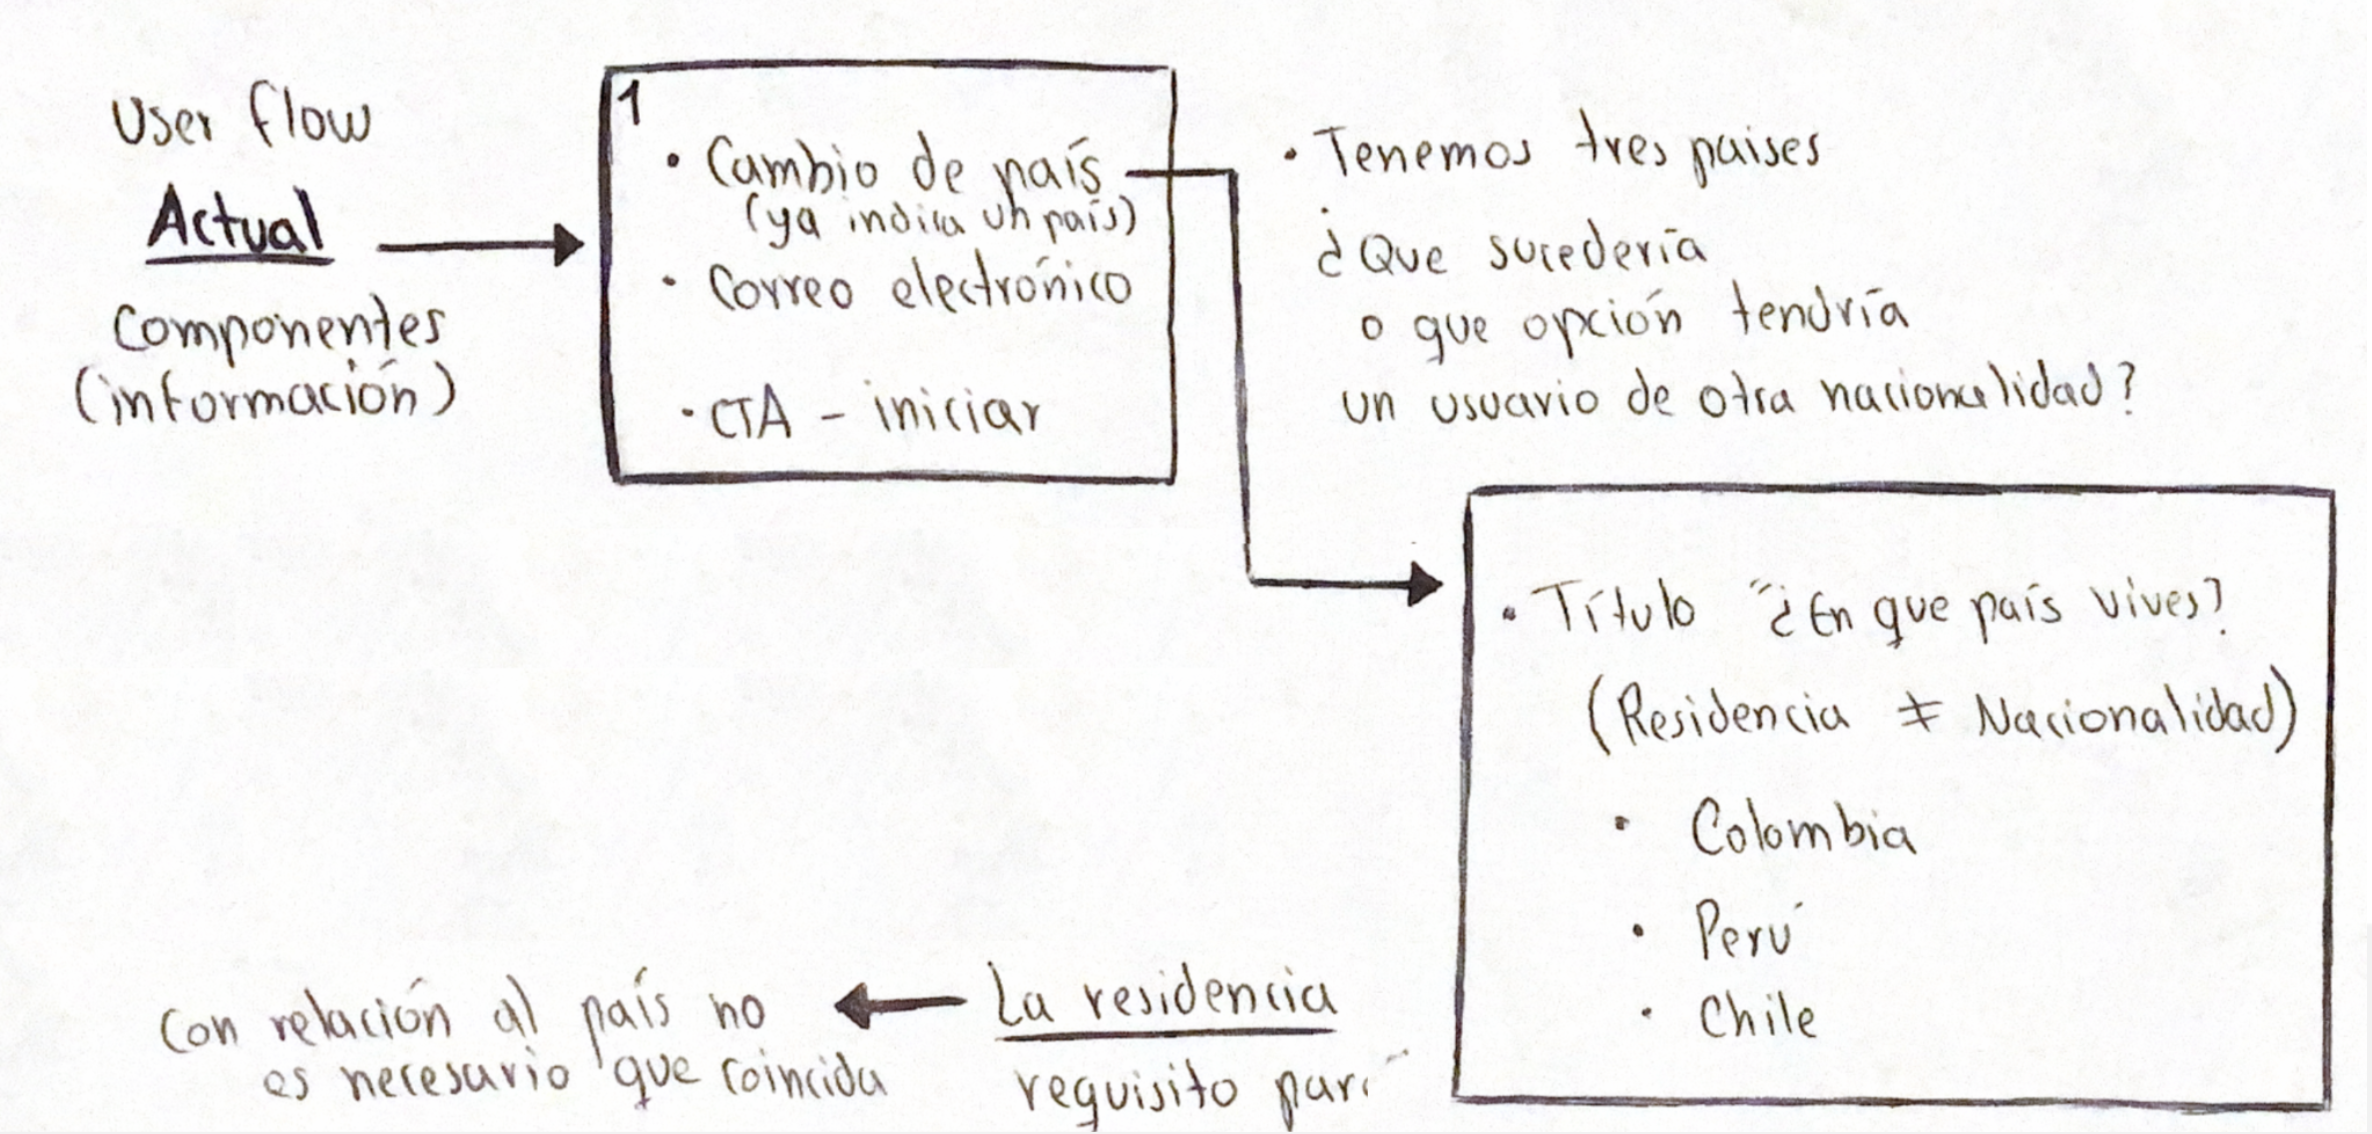 User flow
Actual
Componentes
(información)
1
• Cambio de país
(ya indica un país)
• Correo electrónico
• CTA - iniciar
• Tenemos tres paises
¿Que sucedería
o que opción tendría
un usuario de otra nacionalidad?
• Título "¿En que país vives?
(Residencia ≠ Nacionalidad)
• Colombia
• Perú
• Chile
La residencia
requisito
Con relación al país no
es necesario que coincida